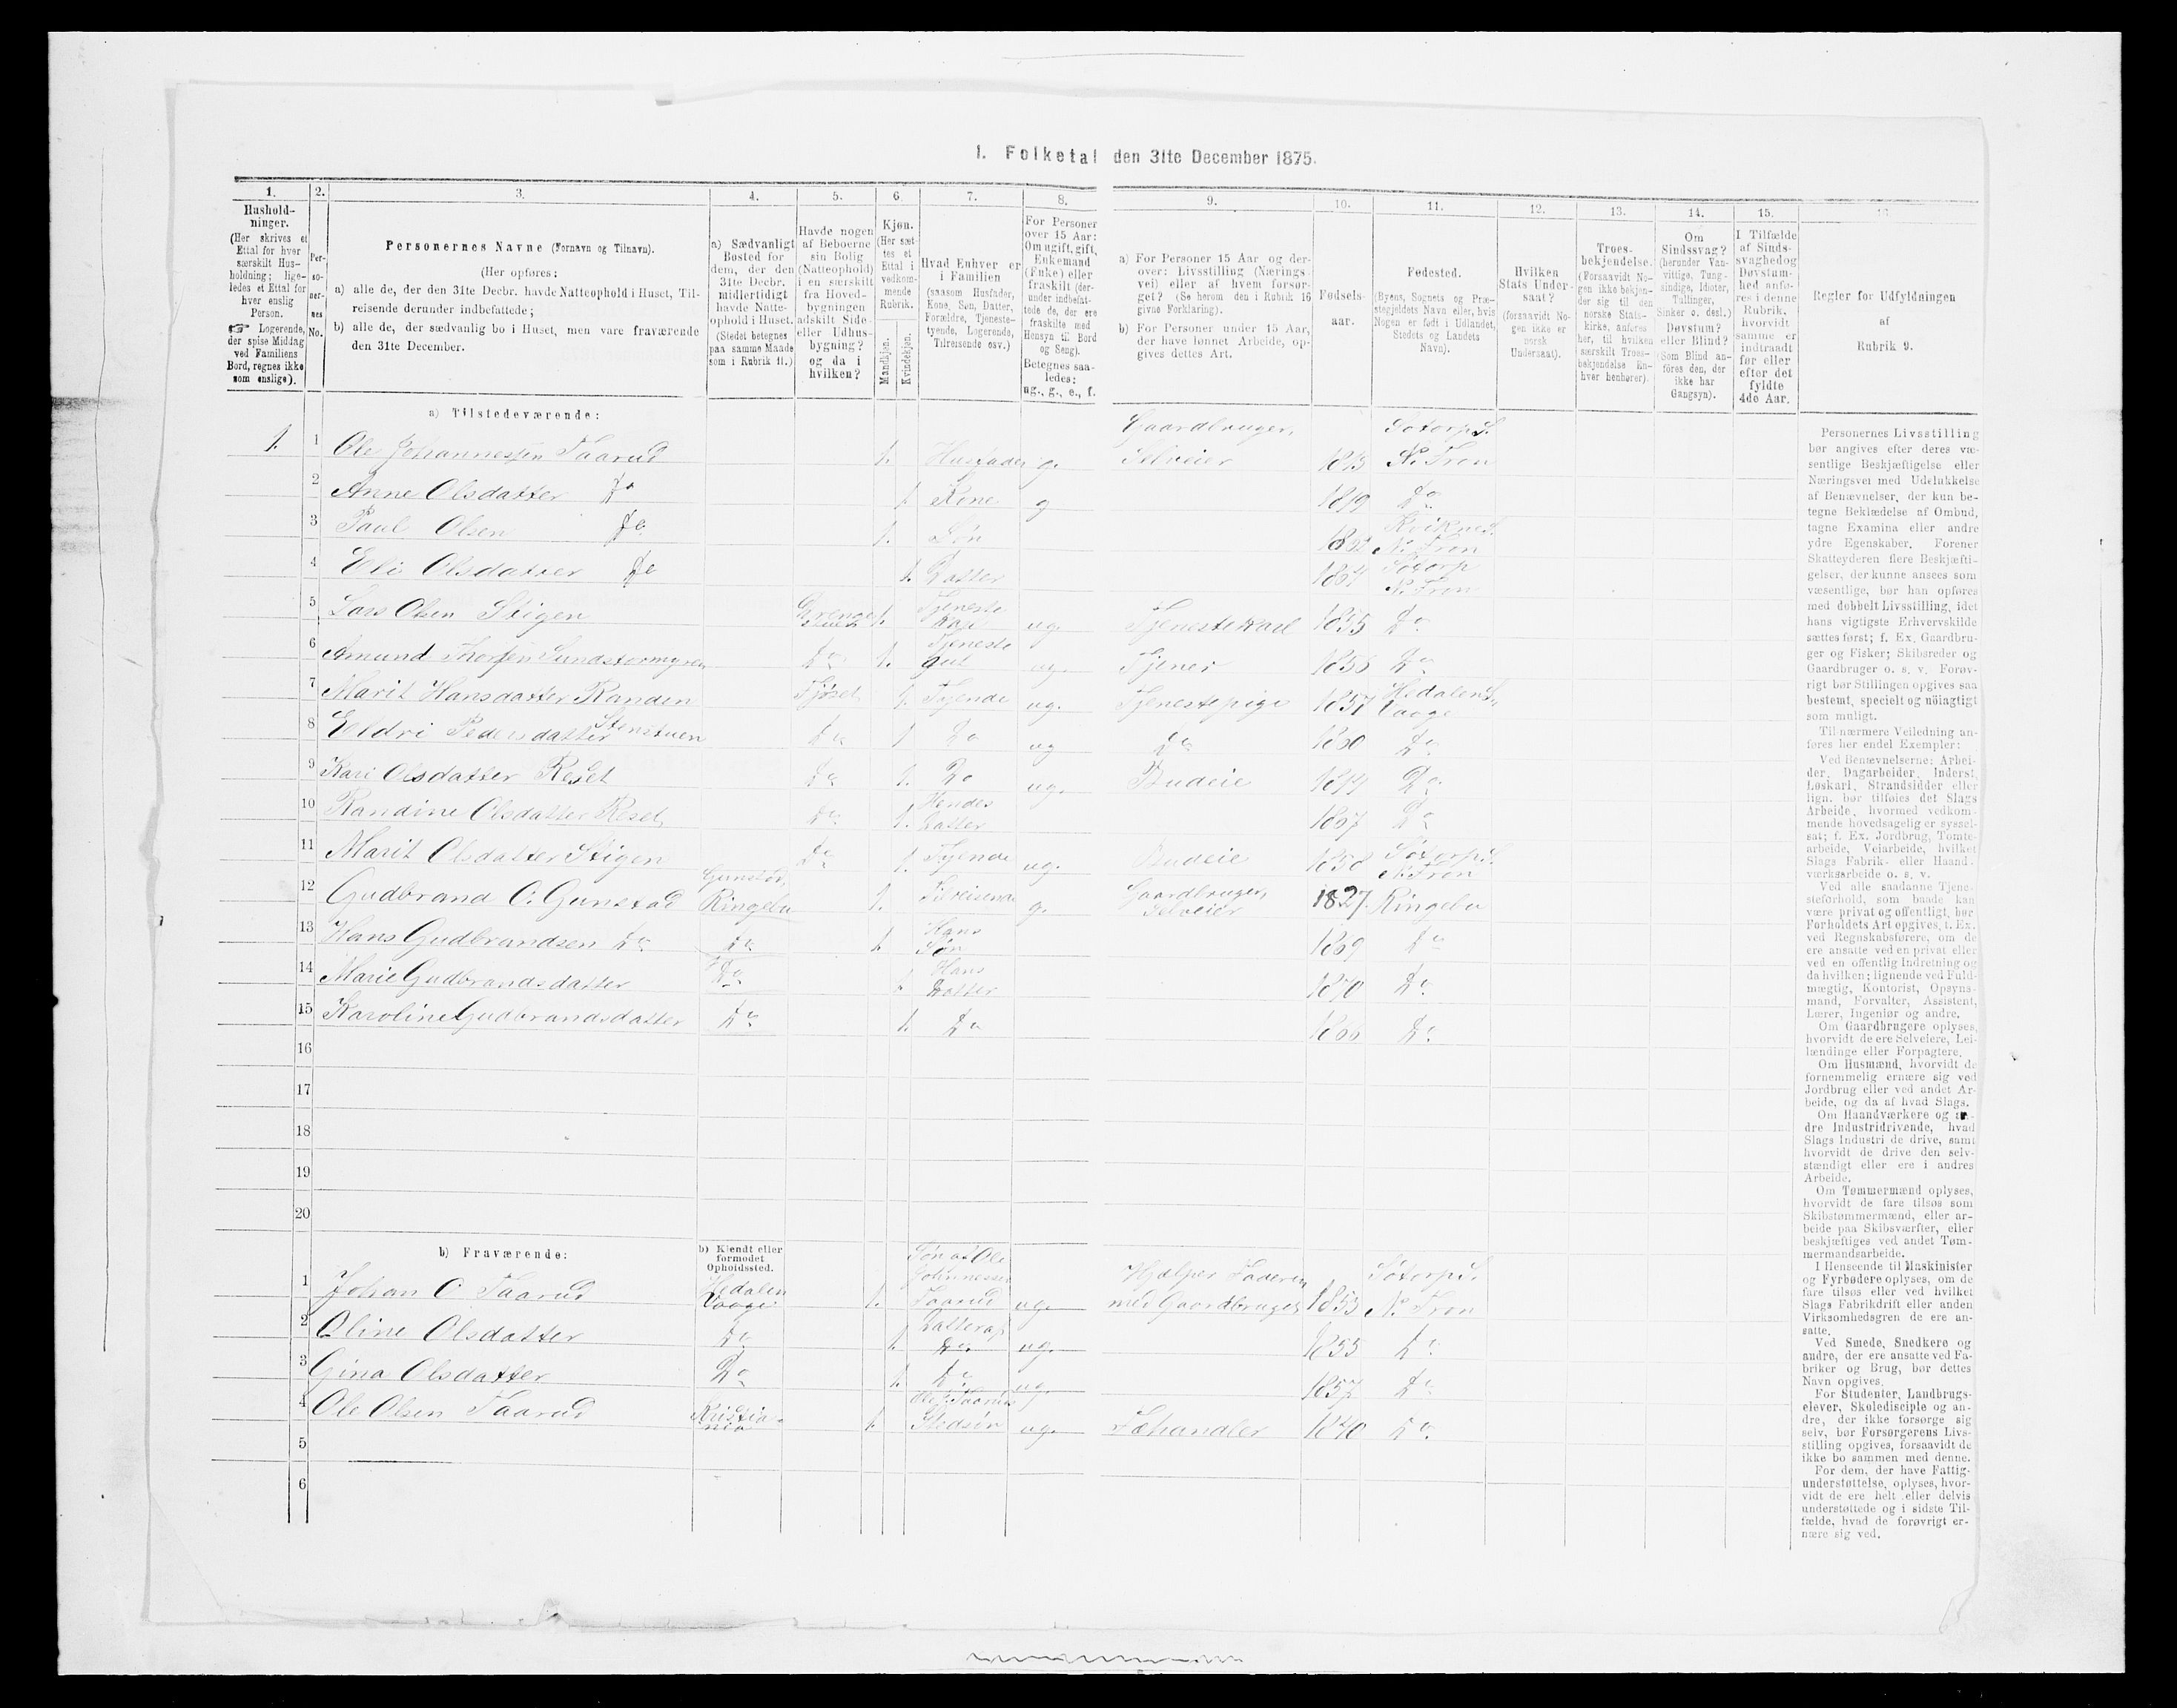 1. Folketal den 31te December 1875.
1. 2. 3. 4. 5. 6. 7. 8. 9. 10. 11. 12. 13. 14. 15. 16
Hushold-
ninger.
(Her skrives et
Ettal for hver
særskilt Hus-
holdning; lige-
ledes et Ettal for
hver enslig
Person.
☞ Logerende,
der spise Middag
ved Familiens
Bord, regnes ikke
som enslige).
Per-
so-
ner-
nes
No.
Personernes Navne (Fornavn og Tilnavn).
(Her opføres:
a) alle de, der den 31te Decbr. havde Natteophold i Huset, Til-
reisende derunder indbefattede;
b) alle de, der sædvanlig bo i Huset, men vare fraværende
den 31te December.
a) Sædvanligt
Bosted for
dem, der den
31te Decbr.
midlertidigt
havde Natte-
ophold i Huset.
(Stedet betegnes
paa samme Maade
som i Rubrik 11.)
Havde nogen
af Beboerne
sin Bolig
(Natteophold)
i en særskilt
fra Hoved-
bygningen
adskilt Side-
eller Udhus-
bygning?
og da i
hvilken?
Kjøn.
(Her sæt-
tes et
Ettal i
vedkom-
mende
Rubrik.
Mandkjøn.
Kvindekjøn.
Hvad Enhver er
i Familien
(saasom Husfader,
Kone, Søn, Datter,
Forældre, Tjeneste-
tyende, Logerende,
Tilreisende osv.)
For Personer
over 15 Aar:
Om ugift, gift,
Enkemand
(Enke) eller
fraskilt (der-
under indbefat-
tede de, der ere
fraskilte med
Hensyn til Bord
og Seng).
Betegnes saa-
ledes:
ug., g., e., f.
a) For Personer 15 Aar og der-
over: Livsstilling (Nærings-
vei) eller af hvem forsør-
get? (Se herom den i Rubrik 16
givne Forklaring).
b) For Personer under 15 Aar,
der have lønnet Arbeide, op-
gives dettes Art.
Fødsels-
aar.
Fødested.
(Byens, Sognets og Præ-
stegjeldets Navn eller, hvis
Nogen er født i Udlandet,
Stedets og Landets
Navn).
Hvilken
Stats Under-
saat?
(forsaavidt No-
gen ikke er
norsk
Undersaat).
Troes-
bekjendelse.
(Forsaavidt No-
gen ikke bekjen-
der sig til den
norske Stats-
kirke, anføres
her, til hvilken
særskilt Troes-
bekjendelse En-
hver henhører).
Om
Sindssvag?
(herunder Van-
vittige, Tung-
sindige, Idioter,
Tullinger,
Sinker o. desl.)
Døvstum?
eller Blind?
(Som Blind an-
føres den, der
ikke har
Gangsyn).
I Tilfælde
af Sinds-
svaghed og
Døvstum-
hed anfø-
res i denne
Rubrik,
hvorvidt
samme er
indtraadt
før eller
efter det
fyldte
4de Aar.
Regler for Udfyldningen
af
Rubrik 9.
a) Tilstedeværende:
1. 1 Ole Johannessen Taarud 1. Husfader g. Gaardbruger, Selveier 1813 Sotorp S. N. Fron
2 Anne Olsdatter Do 1. Kone g 1819 Do
3 Paul Olsen Do 1. Søn Kvikne S. N. Fron
4 Eli Olsdatter Do 1. Datter 1864 Sotorp N. Fron
5 Lars Olsen Stigen 1. Tjeneste Karl ug. Tjenestekarl 1855 Do
6 Amund Sundstormyren Do 1. Tjeneste gut ug. Tjener 1858 Do
7 Marit Hansdatter Randen Fjøset 1. Tyende ug. Tjenestepige 1857 Hedalen S. Vaage
8 Eldri Pedersdatter Stenstuen Do 1 Do ug Do 1860 Do
9 Kari Olsdatter Reset Do 1. Do ug. Budeie 1844 Do
10 Randine Olsdatter Reset Do 1. Hendes Datter 1867 Do
11 Marit Olsdatter Stigen Do 1. Tyende ug. Budeie 1858 Sotorp S. N. Fron
12 Gudbrand O. Gunstad Gunstad, Ringebu 1. Tilreisende g. Gaardbruger, Selveier 1827 Ringebu
13 Hans Gudbrandsen Do Do 1. Hans Søn 1869 Do
14 Marie Gudbrandsdatter Do 1. Hans Datter 1870 Do
15 Karoline Gudbrandsdatter Do 1. Do 1866 Do
16
17
18
19
20
b) Fraværende:
b) Kjendt eller
formodet
Opholdssted.
1 Johan O. Taarud Hedalen Vaage 1. Søn af Ole Johnnessen Taarud ug. Hjælper Faderen med Gaardbruget 1853 Sotorp S. N. Fron
2 Oline Olsdatter Do 1. Datter af Do ug. 1855 Do
3 Gina Olsdatter Do 1. Do ug. 1857 Do
4 Ole Olsen Taarud Kristiania 1. Ole J. Taaruds Stedsøn ug. Fæhandler 1840 Do
5
6
Personernes Livsstilling
bør angives efter deres væ-
sentlige Beskjæftigelse eller
Næringsvei med Udelukkelse
af Benævnelser, der kun be-
tegne Beklædelse af Ombud,
tagne Examina eller andre
ydre Egenskaber. Forener
Skatteyderen flere Beskjæfti-
gelser, der kunne ansees som
væsentlige, bør han opføres
med dobbelt Livsstilling, idet
hans vigtigste Erhvervskilde
sættes først; f. Ex. Gaardbru-
ger og Fisker; Skibsreder og
Gaardbruger o. s. v. Forøv-
rigt bør Stillingen opgives saa
bestemt, specielt og nöiagtigt
som muligt.
Til nærmere Veiledning an-
føres her endel Exempler:
Ved Benævnelserne: Arbei-
der, Dagarbeider, Inderst,
Løskarl, Strandsidder eller
lign. bør tilføies det Slags
Arbeide, hvormed vedkom-
mende hovedsagelig er syssel-
sat; f. Ex. Jordbrug, Tomte-
arbeide, Veiarbeide, hvilket
Slags Fabrik- eller Haand-
værksarbeide o. s. v.
Ved alle saadanne Tjene-
steforhold, som baade kan
være privat og offentligt, bør
Forholdets Art opgives, t. Ex.
ved Regnskabsførere, om de
ere ansatte ved en privat eller
ved en offentlig Indretning og
da hvilken; lignende ved Fuld-
mægtig, Kontorist, Opsyns-
mand, Forvalter, Assistent,
Lærer, Ingeniør og andre.
Om Gaardbrugere oplyses,
hvorvidt de ere Selveiere, Lei-
lændinge eller Forpagtere.
Om Husmænd, hvorvidt de
fornemmelig ernære sig ved
Jordbrug eller ved andet Ar-
beide, og da af hvad Slags.
Om Haandværkere og an-
dre Industridrivende, hvad
Slags Industri de drive, samt
hvorvidt de drive den selv-
stændigt eller ere i andres
Arbeide.
Om Tømmermænd oplyses,
hvorvidt de fare tilsøs som
Skibstømmermænd, eller ar-
beide paa Skibsværfter, eller
beskjæftiges ved andet Tøm-
mermandsarbeide.
I Henseende til Maskinister
og Fyrbødere oplyses, om de
fare tilsøs eller ved hvilket
Slags Fabrikdrift eller anden
Virksomhedsgren de ere an-
satte.
Ved Smede, Snedkere og
andre, der ere ansatte ved Fa-
briker og Brug, bør dettes
Navn opgives.
For Studenter, Landbrugs-
elever, Skoledisciple og an-
dre, der ikke forsørge sig
selv, bør Forsørgerens Livs-
stilling opgives, forsaavidt de
ikke bo sammen med denne.
For dem, der have Fattig-
understøttelse, oplyses, hvor-
vidt de ere helt eller delvis
understøttede og i sidste Til-
fælde, hvad de forøvrigt er-
nære sig ved.